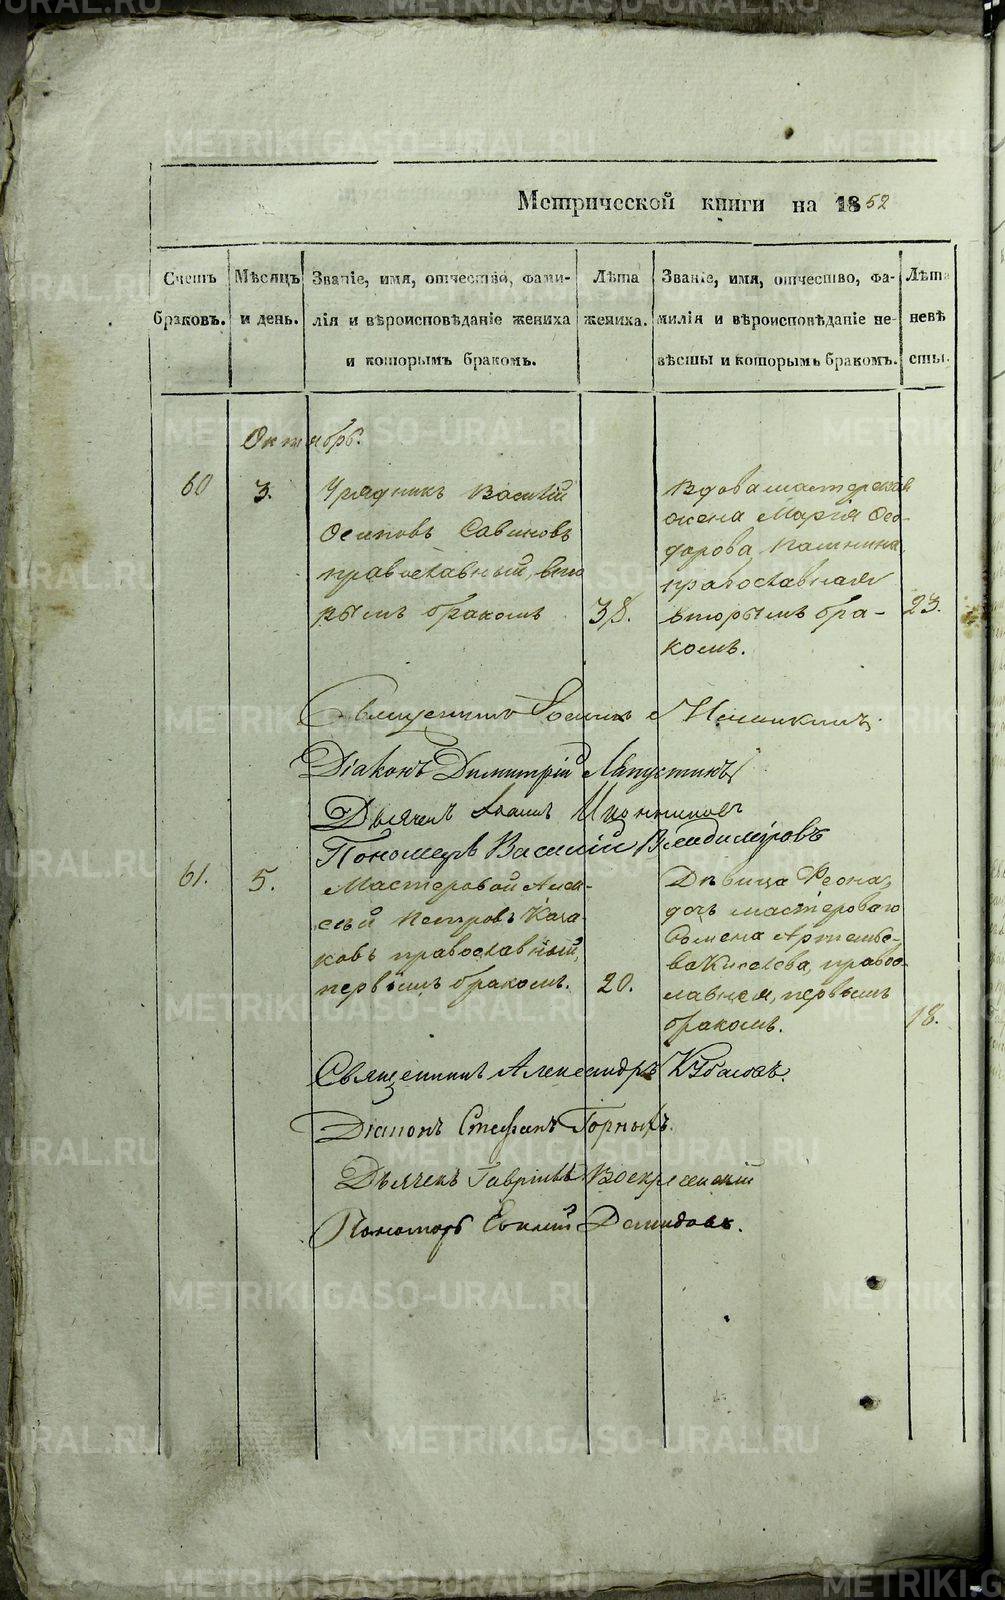 Метрической книги на 1852
Счетъ браковъ.
Мѣсяцъ и день.
Званіе, имя, отчество, фами-
лія и вѣроисповѣданіе жениха
и которымъ бракомъ.
Лѣта жениха.
Званіе, имя, отчество, фа-
милія и вѣроисповѣданіе не-
вѣсты и которымъ бракомъ.
Лѣта невѣ
сты.
Октябрь.
60
3.
Урядникъ Василій
Осиповъ Савиновъ
православный, вто
рымъ бракомъ
38.
Вдова мастерская
жена Марія Ѳео-
дорова
православная
вторымъ бра-
комъ.
23.
Священникъ
Діаконъ Димитрій Лапустинъ
Дьячекъ Іоаннъ Иконниковъ
Пономарь Василій Владиміровъ
61.
5.
Мастеровой Алек-
сѣй Петровъ Каза
ковъ православный,
первымъ бракомъ.
20.
Дѣвица Ѳеона,
дочь мастероваго
Артемье-
ва Киселева, правос-
лавная, первымъ
бракомъ.
18.
Священникъ Александръ
Діаконъ Стефанъ Горныхъ.
Дьячекъ Гавріилъ Воскресенскій
Пономарь Демидовъ.
METRIKI.GASO-URAL.RU